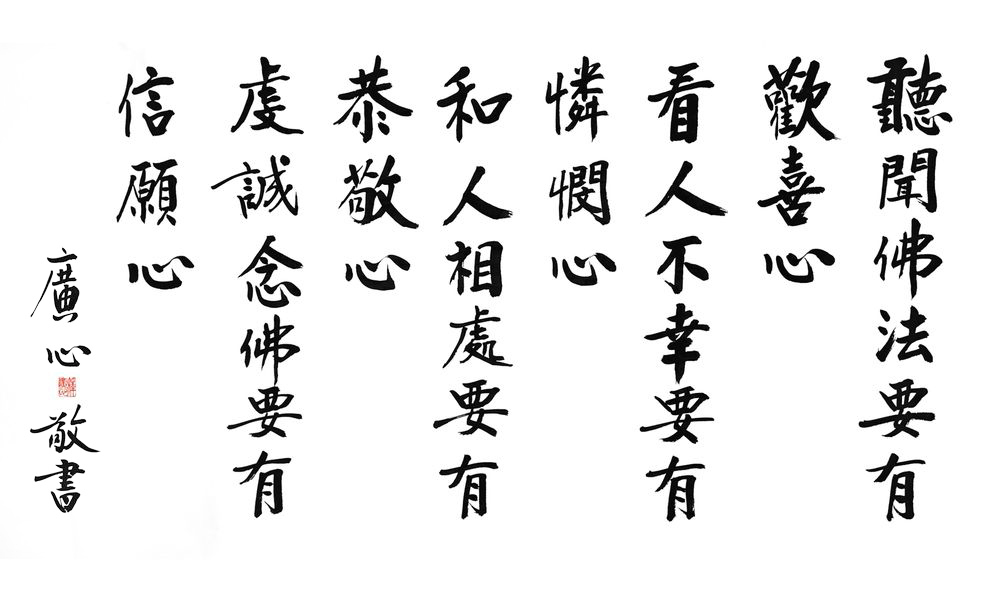 聽聞佛法要有
歡喜心
看人不幸要有
憐憫心
和人相處要有
恭敬心
虔誠念佛要有
信願心
廣心
敬書